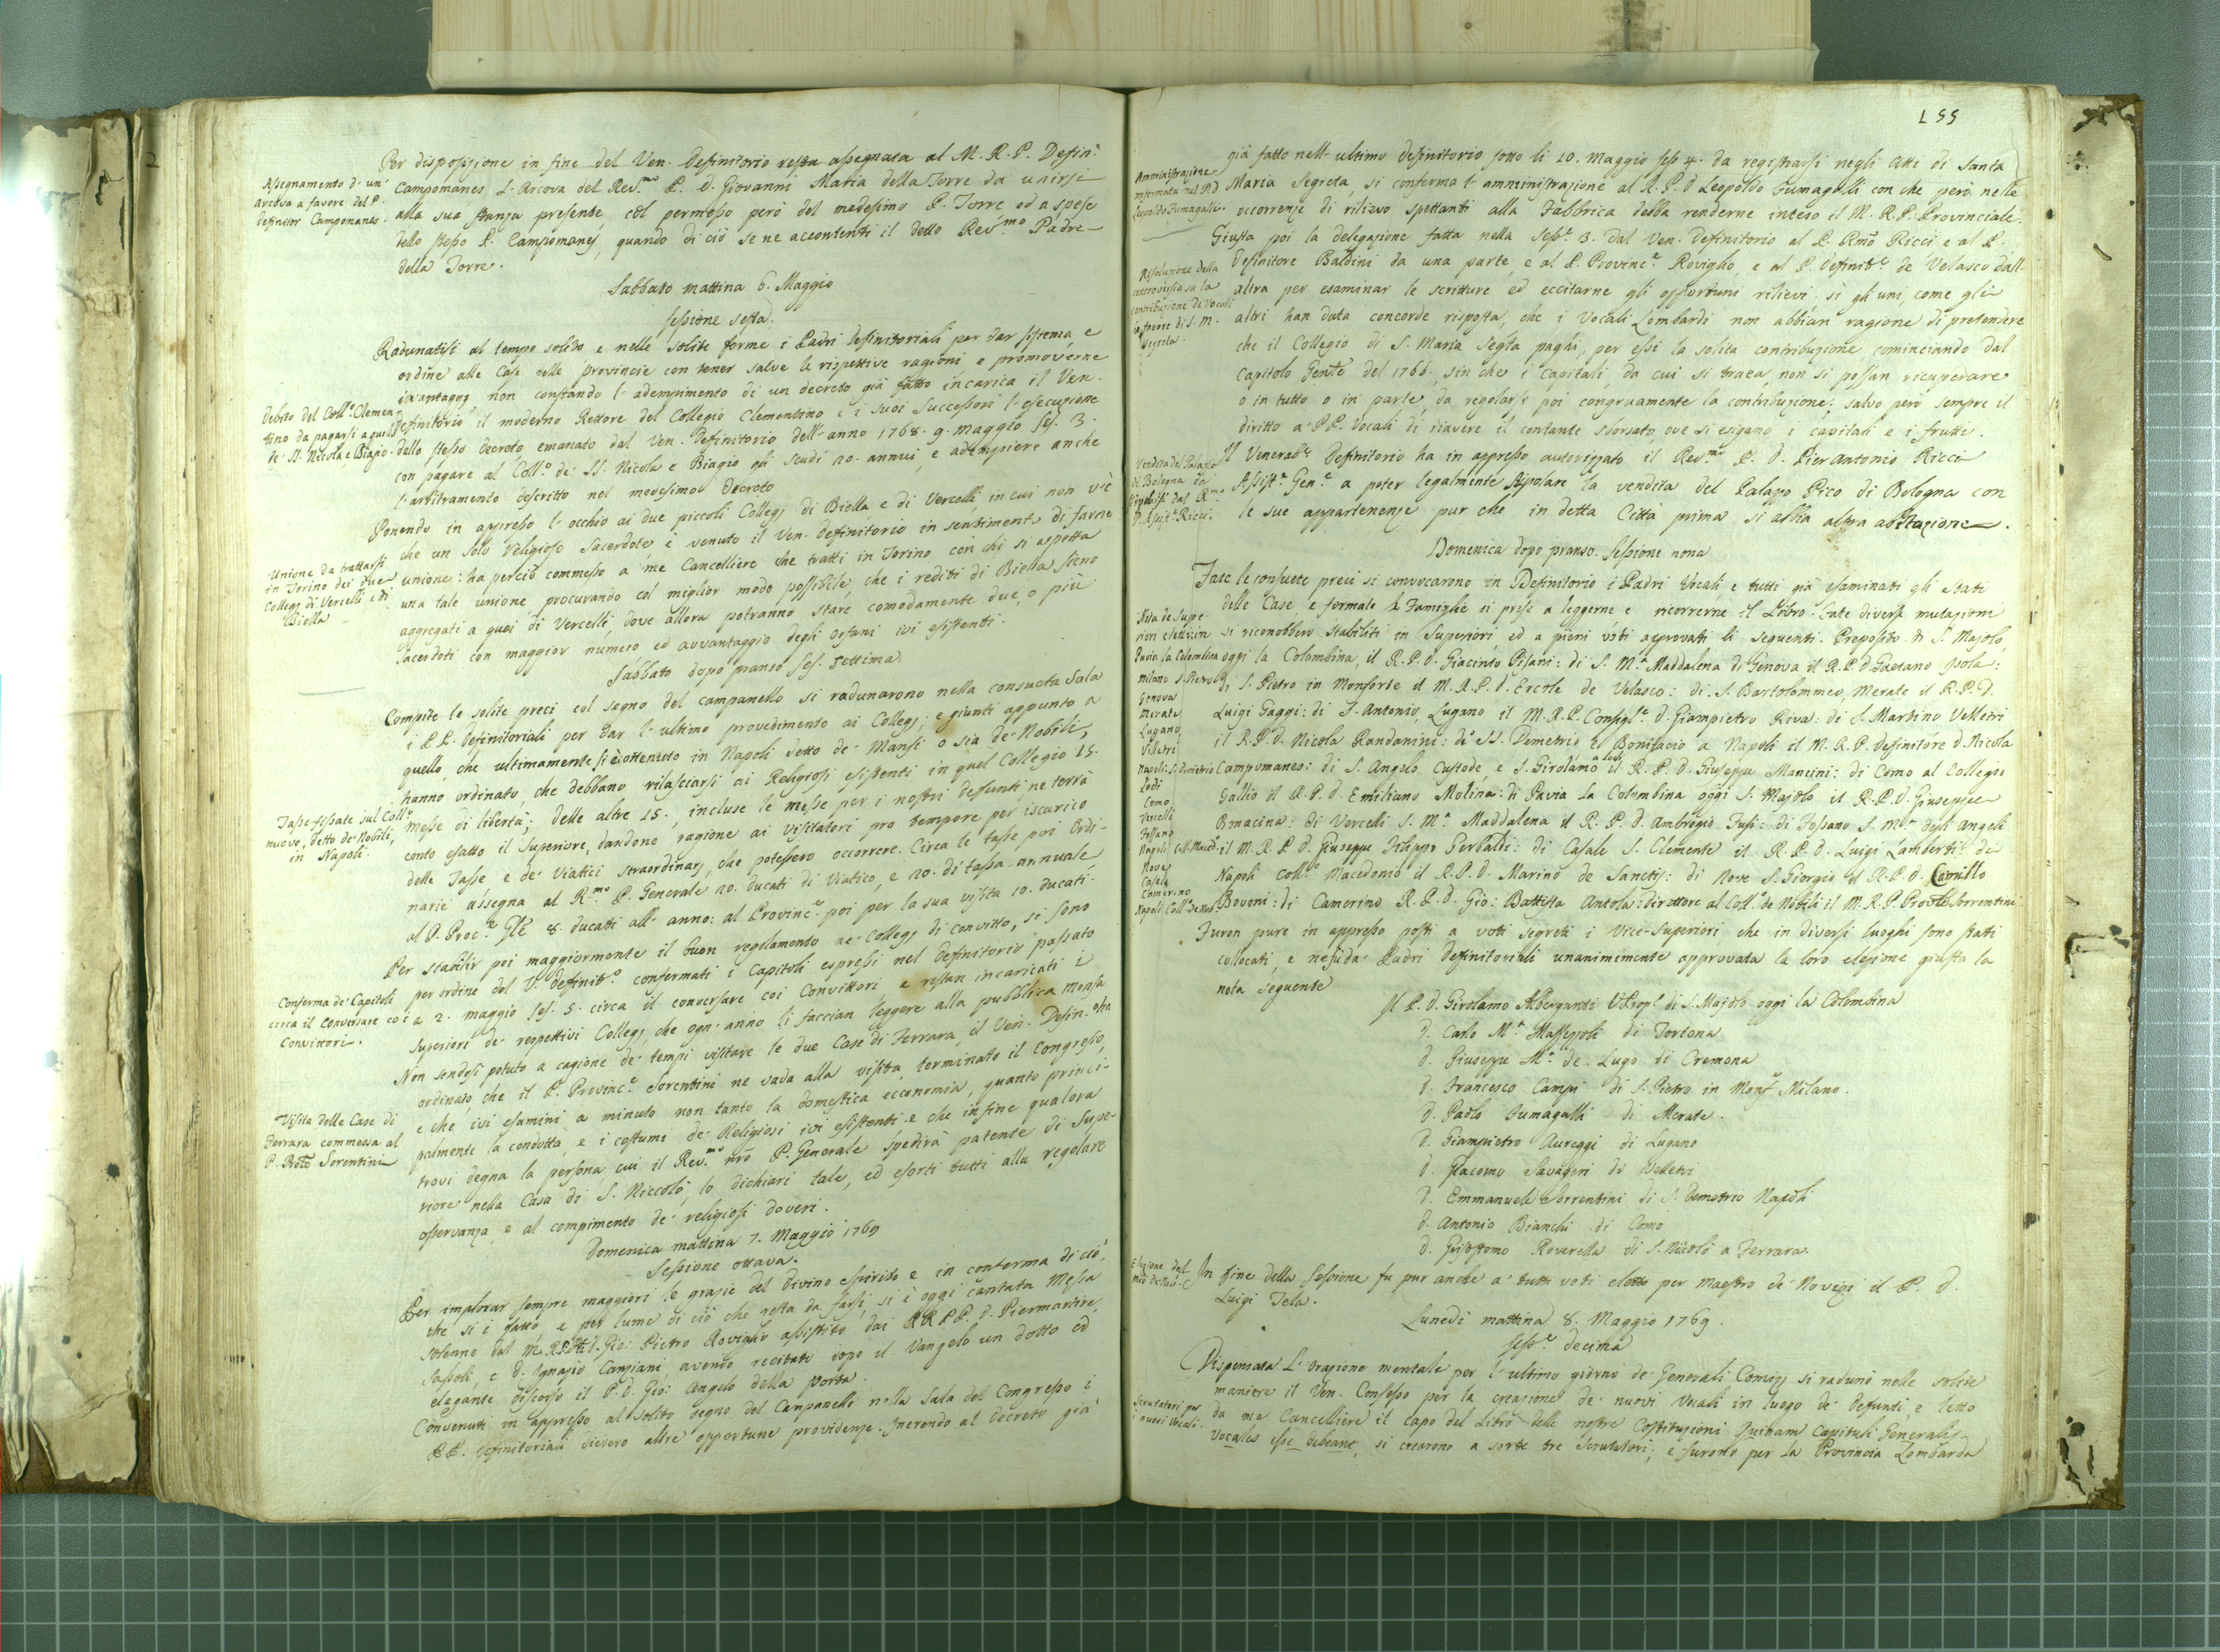 Per disposizione in fine del Ven. Definitorio resta assegnata al M. R. P. Defin.
Assegnamento d' un
arcova a favore del P.
Definitor Campomanes.
Campomanes l' Arcova del Rev.mo P. D. Giovanni Maria della Torre da unirsi
alla sua stanza presente, col permesso però del medesimo P. Torre ed a spese
dello stesso P. Campomanes, quando di ciò se ne accontenti il detto Rev.mo Padre
della Torre.
Sabbato mattina 6. Maggio
sessione sesta.
Radunatisi al tempo solito e nelle solite forme i Padri Definitoriali per dar sistema, e
ordine alle Case delle provincie con tener salve le rispettive ragioni e promoverne
i vantaggj non constando l' adempimento di un decreto già fatto incarica il Ven.
Debito del Coll.o Clemen-
tino da pagarsi a quel
de' SS. Nicola e Biagio.
Definitorio il moderno Rettore del Collegio Clementino e i suoi Successori l' esecuzione
dello stesso decreto, emanato dal Ven. Definitorio dell' anno 1768. 9. maggio Ses. 3.
con pagare al Coll.o de' SS. Nicola e Biagio gli scudi 20. annui, e adempiere anche
l' arbitramento descritto nel medesimo Decreto
Ponendo in appresso l' occhio ai due piccoli Collegj di Biella, e di Vercelli, in cui non v' è
che un solo Religioso Sacerdote è venuto il Ven. Definitorio in sentimento di farne
Unione da trattarsi
in Torino dei due
Collegj di Vercelli e di
Biella
unione: ha perciò commesso a me Cancelliere che tratti in Torino con chi si aspetta
una tale unione, procurando col miglior modo possibile, che i rediti di Biella sieno
aggregati a quei di Vercelli, dove allora potranno stare comodamente due, o più
Sacerdoti con maggior numero ed avvantaggio degli orfani ivi esistenti.
Sabbato dopo pranso Ses. settima.
Compite le solite preci col segno del campanello si radunarono nella consueta Sala
i PP. Definitoriali per dar l' ultimo provedimento ai Collegj; e giunti appunto a
quello, che ultimamente si è ottenuto in Napoli detto de' Mansi o sia de' Nobili,
hanno ordinato, che debbano rilasciarsi ai Religiosi esistenti in quel Collegio 15.
Tasse fissate sul Coll.o
nuovo, detto de' Nobili,
in Napoli.
messe di libertà; delle altre 15., incluse le messe per i nostri defunti, ne terrà
conto esatto il Superiore, dandone ragione ai Visitatori pro tempore per iscarico
delle Tasse e de' Viatici straordinarj, che potessero occorrere. Circa le tasse poi Ordi-
narie assegna al R.mo P. Generale 20. ducati di Viatico, e 20. di tassa annuale,
al P. Proc.e Gle 8. ducati all' anno: al Provinc.e poi per la sua visita 10. ducati.
Per stabilir poi maggiormente il buon regolamento ne' Collegj di convitto, si sono
per ordine del V. Definit.o confermati i Capitoli espressi nel Definitorio passato
Conferma de' Capitoli
circa il conversare coi
Convittori.
a 2. maggio Ses. 5. circa il conversare coi Convittori, e restan incaricati i
Superiori de' respettivi Collegj, che ogn' anno li faccian leggere alla pubblica mensa
Non sendosi potuto a cagione de' tempi visitare le due Case di Ferrara, il Ven. Defin. oha
ordinato, che il P. Provinc.e Sorentini ne vada alla visita, terminato il Congresso,
e che ivi esamini a minuto non tanto la domestica economia, quanto princi-
Visita delle Case di
Ferrara commessa al
P. Sorentini
palmente la condotta, e i costumi de' Religiosi ivi esistenti. e che infine qualora
trovi degna la persona, cui il Rev.mo nro P. Generale spedirà patente di Supe-
riore nella Casa di S. Niccolò, lo dichiari tale, ed esorti tutti alla regolare
osservanza, e al compimento de' religiosi doveri.
Domenica mattina 7. Maggio 1769
Sessione ottava.
Per implorar sempre maggiori le grazie del divino Spirito e in conferma di ciò,
che si è fatto e per lume di ciò che resta da farsi, si è oggi cantata Messa
solenne dal M. R. P. D. Gio: Pietro Roviglio assistito dai RR. PP. D. Piermartire
Sassoli, e D. Ignazio Canziani avendo recitato dopo il Vangelo un dotto ed
elegante discorso il P. D. Gio: Angelo della porta.
Convenuti in appresso al solito segno del Campanello nella Sala del Congresso i
PP. Definitoriali diedero altre opportune providenze. Inerendo al decreto già
155
già fatto nell' ultimo Definitorio sotto li 10. maggio Ses 4. da registrarsi negli Atti di Santa
Amministrazione
confermata nel P. D.
Leopoldo Fumagalli.
Maria Segreta, si conferma l' amministrazione al R. P. D Leopoldo Fumagalli con che però nelle
occorrenze di rilievo spettanti alla Fabbrica debba renderne inteso il M. R. P. Provinciale.
Giusta poi la delegazione fatta nella Sess.e 3. dal Ven. Definitorio al P. Rmo Ricci e al P.
Risoluzione della
controversia su la
contribuzione de Vocali
in favore di S. M.
Segreta.
Definitore Baldini da una parte, e al P. Provinc.e Roviglio, e al P. Definit.e de Velasco dall'
altra per esaminar le scritture ed eccitarne gli opportuni rilievi sì gli uni, come gli
altri han data concorde risposta, che i Vocali Lombardi non abbian ragione di pretendere
che il Collegio di S. Maria Segta paghi per essi la solita contribuzione, cominciando dal
Capitolo Genle del 1766. sin che i Capitali, da cui si traea, non si possan ricuperare
o in tutto o in parte, da regolarsi poi congruamente la contribuzione; salvo però sempre il
diritto a' PP. Vocali di riavere il contante sborsato, ove si esigano i capitali e i frutti.
Vendita del Palazzo
di Bologna da
stipolarsi dal R.mo
P. Assist.e Ricci.
Il Venerab.e Definitorio ha in appresso autorizzato il Rev.mo P. D. Pier Antonio Ricci
Assist.e Gen.e a poter legalmente stipolare la vendita del Palazzo Pico di Bologna con
le sue appartenenze pur che in detta Città prima si abbia altra abitazione.
Domenica dopo pranso. Sessione nona
Fatte le consuete preci si convocarono in Definitorio i Padri Vocali e tutti già esaminati gli stati
delle Case, e formate le Famiglie si prese a leggerne e ricorrerne il Libro. Fatte diverse mutazioni
Nota de Supe-
riori eletti: in
Pavia la Colombina
Milano S. Pietro
Genova
Merate
Lugano
Velletri
Napoli: S. Demetrio
Lodi
Como
Vercelli
Fossano
Napoli Coll. Maced.
Nove
Casale
Camerino
Napoli Coll. de Nob.
si riconobbero stabiliti in Superiori ed a pieni voti approvati li seguenti. Preposito di S. Majolo,
oggi la Colombina, il R. P. D. Giacinto Pisani: di S. M.a Maddalena di Genova il R. P. D. Gaetano Isola:
di S. Pietro in Monforte il M. R. P. D. Ercole de Velasco: di S. Bartolommeo, Merate il R. P. D.
Luigi Gaggi: di S. Antonio, Lugano il M. R. P. Consigl.e D. Giampietro Riva: di S. Martino Velletri
il R. P. D. Nicola Randanini: de SS. Demetrio e Bonifacio a Napoli il M. R. P. Definitore D. Nicola
Campomanes: di S. Angelo Custode, e S. Girolamo a Lodi il R. P. D. Giuseppe Mancini: di Como al Collegio
Gallio il R. P. D. Emiliano Molina: di Pavia la Colombina oggi S. Majolo il R. P. D. Giuseppe
Bonacina: di Vercelli S. M.a Maddalena il R. P. D. Ambrogio Fusi: di Fossano S. M.a degli Angeli
il M. R. P. D. Giuseppe Filippo Gerbaldi: di Casale S. Clemente il R. P. D. Luigi Lamberti: di
Napoli Coll.o Macedonio il R. P. D. Marino de Sanctis: di Nove S. Giorgio il R. P. D. Camillo
Bovoni: di Camerino R. P. D. Gio: Battista Antola: direttore al Coll.o de Nobili il M. R. P. Sorrentini
Furon pure in appresso posti a voti segreti i Vice-Superiori che in diversi luoghi sono stati
collocati, e ne fu da' Padri Definitoriali unanimimente approvata la loro elezione giusta la
nota seguente
Il P. D. Girolamo Alberganti di S. Majolo oggi la Colombina
D. Carlo M.a Masseypoli di Tortona
D. Giuseppe M.a de Lugo di Cremona
D. Francesco Campi di S. Pietro in Monf.e Milano.
D. Paolo Fumagalli di Merate.
D. Giampietro Aureggi di Lugano
D. Giacomo Savageri di Velletri
D. Emmanuele Sorrentini di S. Demetrio Napoli
D. Antonio Bianchi di Como
D. Grisostomo Roverella di S. Nicolò a Ferrara.
Elezione del
In fine della Sessione fu pur anche a' tutti voti eletto per Maestro de' Novizj il P. D.
Luigi Tela.
Lunedì mattina 8. Maggio 1769.
Sess.e decima
Dispensata l' orazione mentale per l' ultimo giorno de' Generali Comizj si radunò nelle solite
maniere il Ven. Consesso per la creazione de' nuovi Vocali in luogo de' Defunti, e letto
Scrutatori per
i nuovi Vocali.
da me Cancelliere il capo del Libro delle nostre Costituzioni Quinam Capituli Generalis
Vocales esse debeant, si crearono a sorte tre Scrutatori; e furono per la Provincia Lombarda